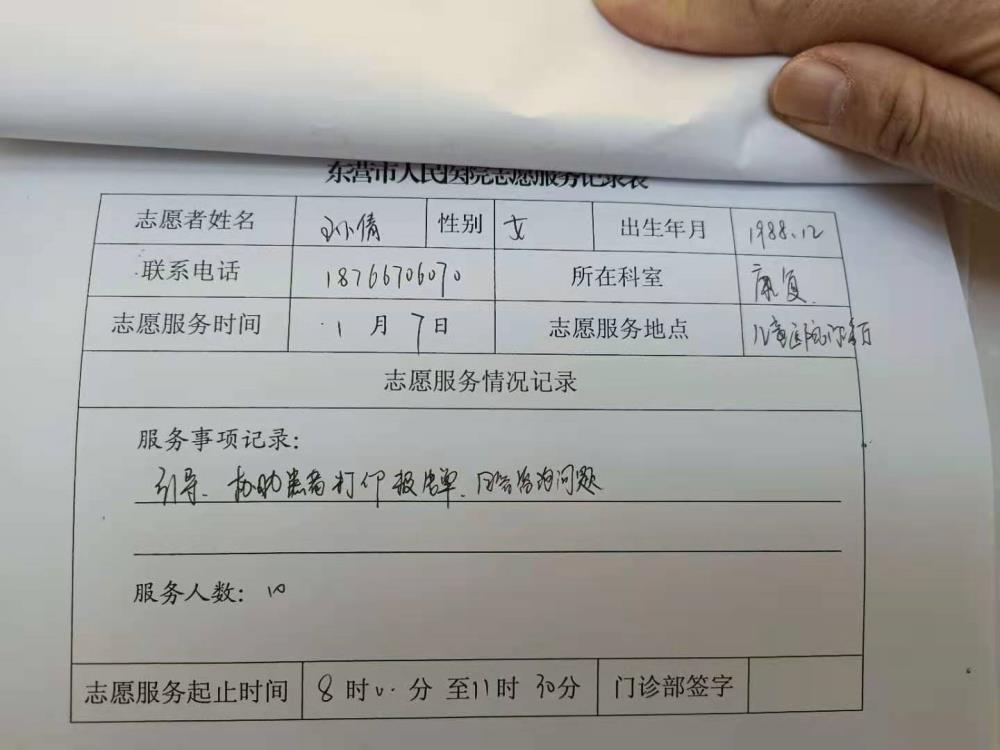 东营市人民医院志愿服务记录表
志愿者姓名 孙倩 性别 女 出生年月 1988.12
联系电话 18766706070 所在科室 康复
志愿服务时间 1月7日 志愿服务地点 儿童医院门诊
志愿服务情况记录
服务事项记录:
引导、协助患者打印报告单、回答咨询问题
服务人数: 10
志愿服务起止时间 8时 分至11时30分 门诊部签字